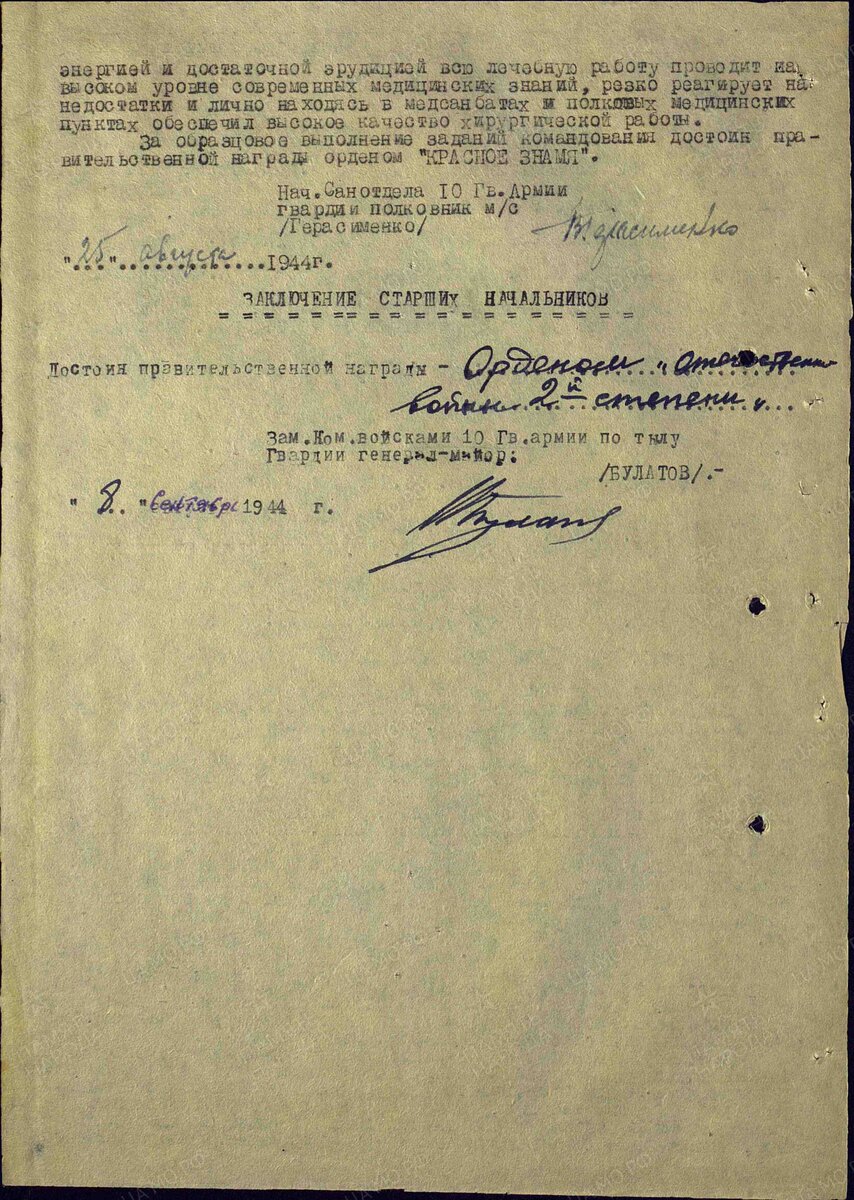 энергией и достаточной эрудицией всю лечебную работу проводит на
высоком уровне современных медицинских знаний, резко реагирует на
недостатки и лично находясь в медсанбатах и полковых медицинских
пунктах обеспечил высокое качество хирургической работы.
За образцовое выполнение заданий командования достоин пра-
вительственной награды орденом "КРАСНОЕ ЗНАМЯ".
Нач.Санотдела 10 Гв.Армии
гвардии полковник м/с
/Герасименко/
ВГерасименко
"25" августа 1944г.
ЗАКЛЮЧЕНИЕ СТАРШИХ НАЧАЛЬНИКОВ
Достоин правительственной награды - Орденом "Отечественн
войны 2й степени"
Зам.Ком.войсками 10 Гв.армии по тылу
Гвардии генерал-майор:
/БУЛАТОВ/.-
"8" сентября 1944 г.
Булатов